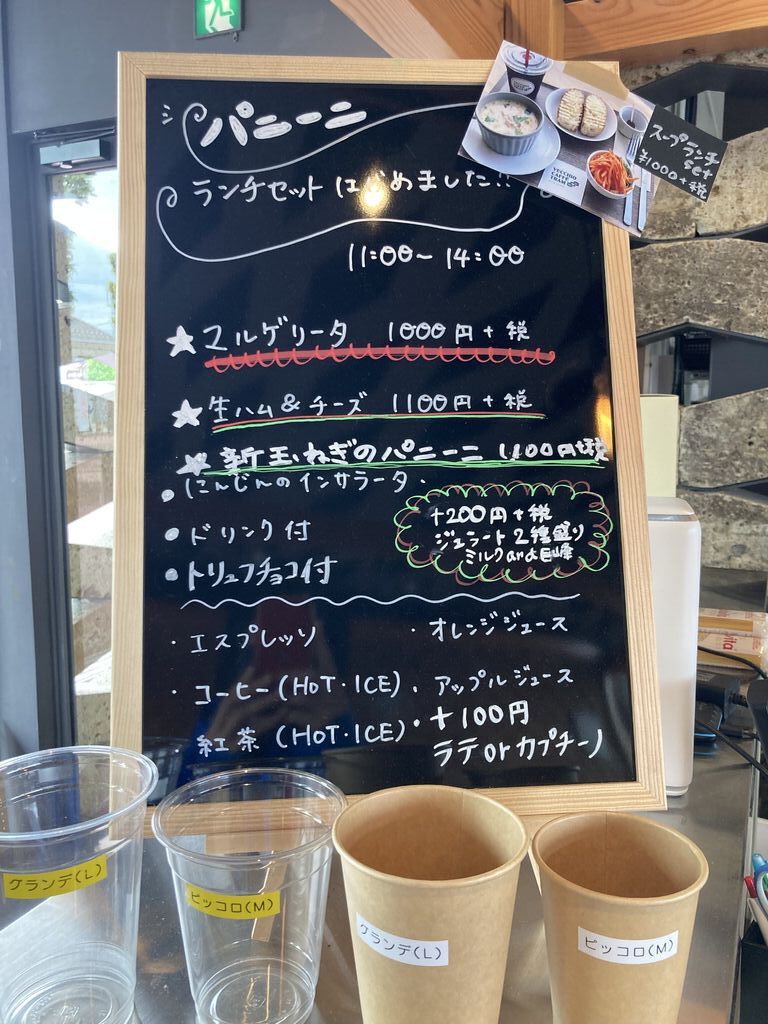 パニーニ
ランチセット はじめました!!
11:00~14:00
スープランチ
set
¥1000+税
VECCHIO
CAFFE
TRAM
★マルゲリータ 1000円+税
★生ハム&チーズ 1100円+税
★新玉ねぎのパニーニ 1,100円+税
・にんじんのインサラータ・
・ドリンク付
・トリュフチョコ付
+200円+税
ジェラート2種盛り
ミルクand巨峰
・エスプレッソ
・オレンジジュース
・コーヒー(HOT・ICE)
・アップルジュース
紅茶(HOT・ICE)
・+100円
ラテorカプチーノ
グランデ(L)
ピッコロ(M)
グランデ(L)
ピッコロ(M)